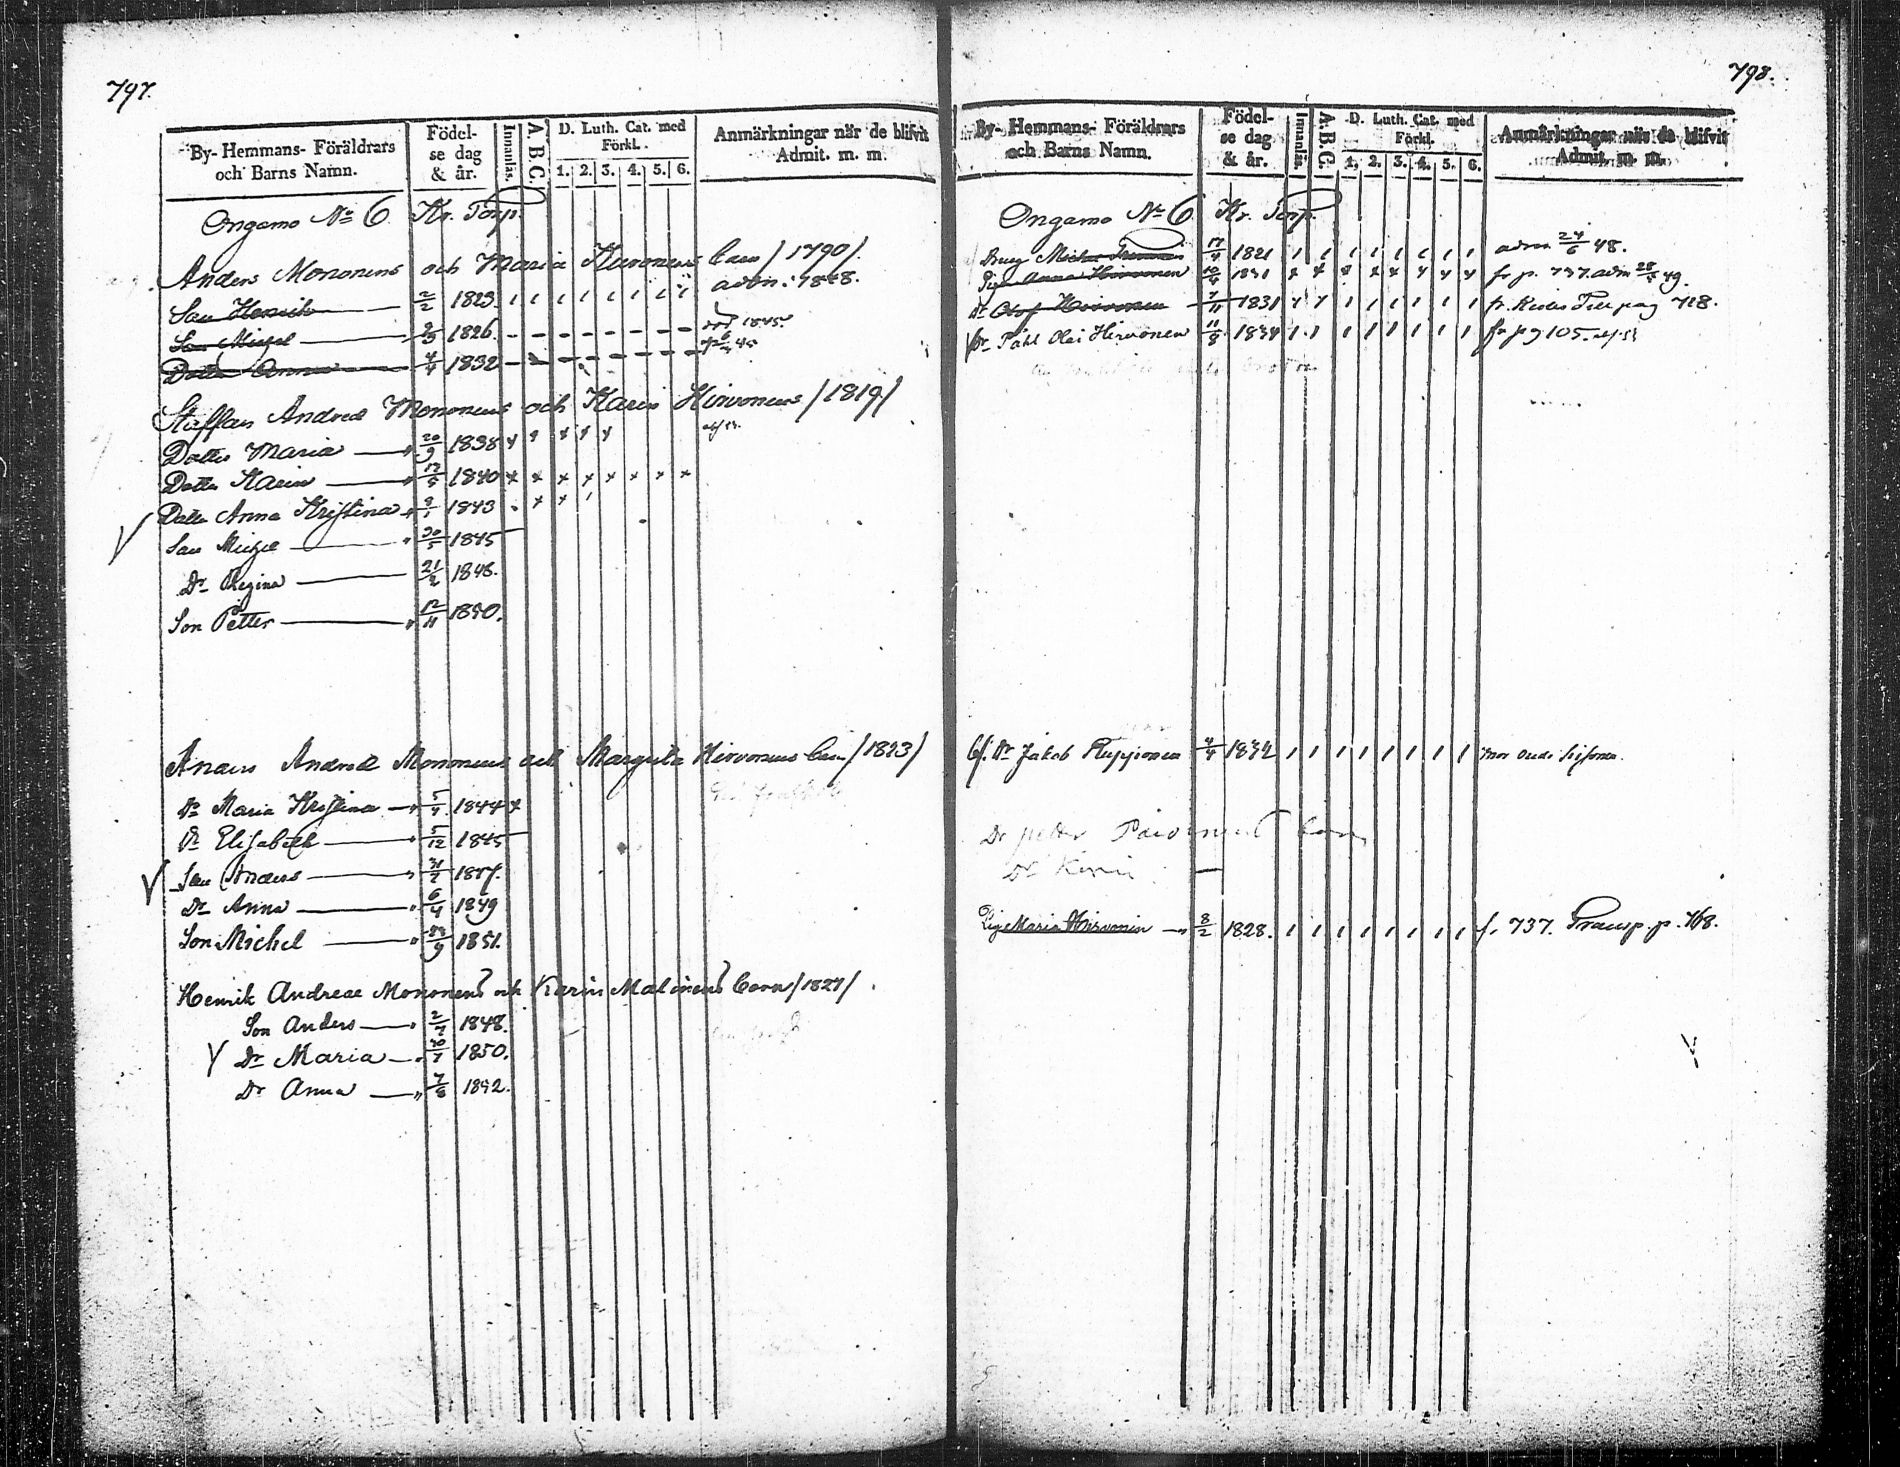 797.
By- Hemmans- Föräldrars och Barns Namn. Födelse dag & år. Innanläs. A.B.C. D. Luth. Cat. med Förkl. 1. 2. 3. 4. 5. 6. Anmärkningar när de blifvit Admit. m. m.
Ongamo No 6 Kr. Torp.
Anders Mononens och Maria Hirvonens barn /1790/.
Son Henrik 2/2 1823. adm: 1848.
Son Michel 1826. 1845.
Dottr Anna 4/4 1832
Staffan Andreæ Mononens och Karin Hirvonens /1819/
Dottr Maria 20/9 1838
Dottr Karin 17/5 1840
Dottr Anna Kristina 1843
Son Michel 30/5 1845
Dr Regina 21/2 1848.
Son Petter 12/11 1850.
Anders Andreæ Mononens och Margreta Hirvonens barn /1823/
Dr Maria Kristina 5/4 1844
Dr Elisabeth 5/12 1845
Son Anders 1847.
Dr Anna 6/4 1849
Son Michel 1851.
Henrik Andreae Mononens och Karin Malinens barn /1827/.
Son Anders 1848.
Dr Maria 30/7 1850.
Dr Anna 7/8 1852.
798.
By- Hemmans- Föräldrars och Barns Namn. Födelse dag & år. Innanläs. A.B.C. D. Luth. Cat. med Förkl. 1. 2. 3. 4. 5. 6. Anmärkningar när de blifvit Admit. m. m.
Ongamo No 6 Kr. Torp.
Michel 17/4 1821 adm 24/6 48.
Pig. Anna Hirvonen 10/4 1831 fr p. 737. adm 49.
Dr Olof Hirvonen 7/11 1831 pag 718.
Dr Påhl Olai Hirvonen 11/8 1834 fr pg 105.
Dr Jakob Kupponen 4/4 1832
Dr petter
Dr
Pig. Maria Hirvonen 8/2 1828. f. 737. Transp. p. 768.